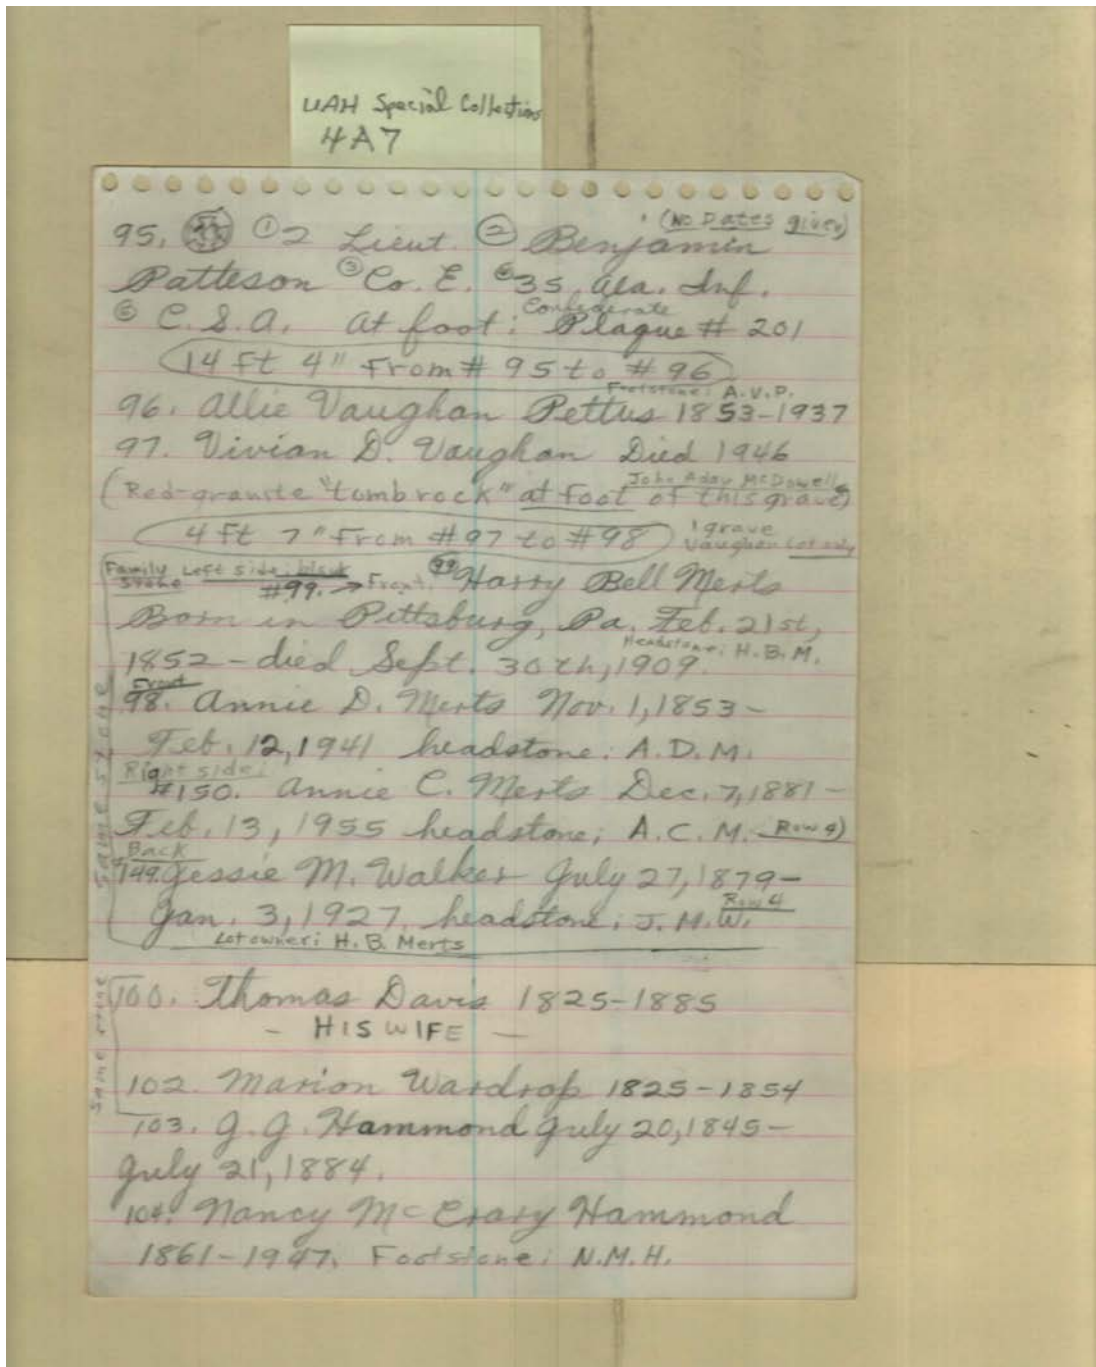 UAH Special Collections
4A7
(No Dates given)
95. ① 2 Lieut. ② Benjamin
Patteson ③ Co. E. ④ 35 Ala. Inf.
⑤ C.S.A. At foot: Confederate Plaque # 201
14 ft 4" From # 95 to # 96
Footstone: A.V.P.
96. Allie Vaughan Pettus 1853-1937
97. Vivian D. Vaughan Died 1946
John Aday McDowell
(Red-granite "tombrock" at foot of this grave)
4 ft 7" From #97 to #98
1 grave
Vaughan Lot only
Family Stone
Left side: blank
#99. → Front: 99 Harry Bell Merts
Born in Pittsburg, Pa. Feb. 21st,
Headstone: H.B.M.
1852 - died Sept. 30th, 1909.
Front
98. Annie D. Merts Nov. 1, 1853 -
Feb. 12, 1941 headstone: A.D.M.
Right side:
#150. Annie C. Merts Dec. 7, 1881 -
Feb. 13, 1955 headstone; A.C.M. Row 4)
Back
149. Jessie M. Walker July 27, 1879 -
Row 4
Jan. 3, 1927, headstone: J.M.W.
Lot owner: H.B. Merts
Same stone
100. Thomas Davis 1825-1885
- HIS WIFE -
102. Marion Wardrop 1825-1854
Same stone
103. J.J. Hammond July 20, 1845 -
July 21, 1884.
104. Nancy McCrary Hammond
1861-1947. Footstone: N.M.H.